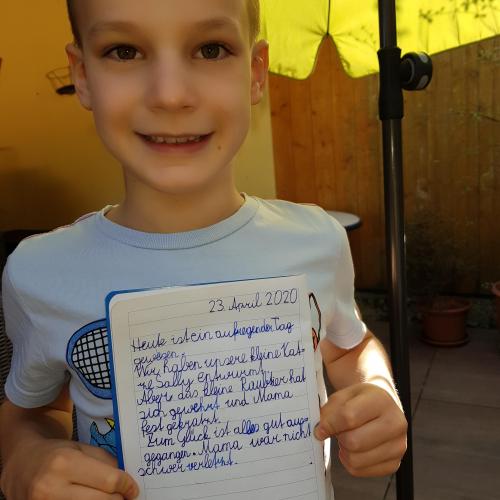 23. April 2020
Heute ist ein aufregender Tag
gewesen.
Wir haben unsere kleine Kat-
ze Sally Entwurmt.
Aber das kleine Raubtier hat
sich gewehrt und Mama
fest gekratzt.
Zum Glück ist alles gut aus-
gegangen. Mama war nicht
schwer verletzt.